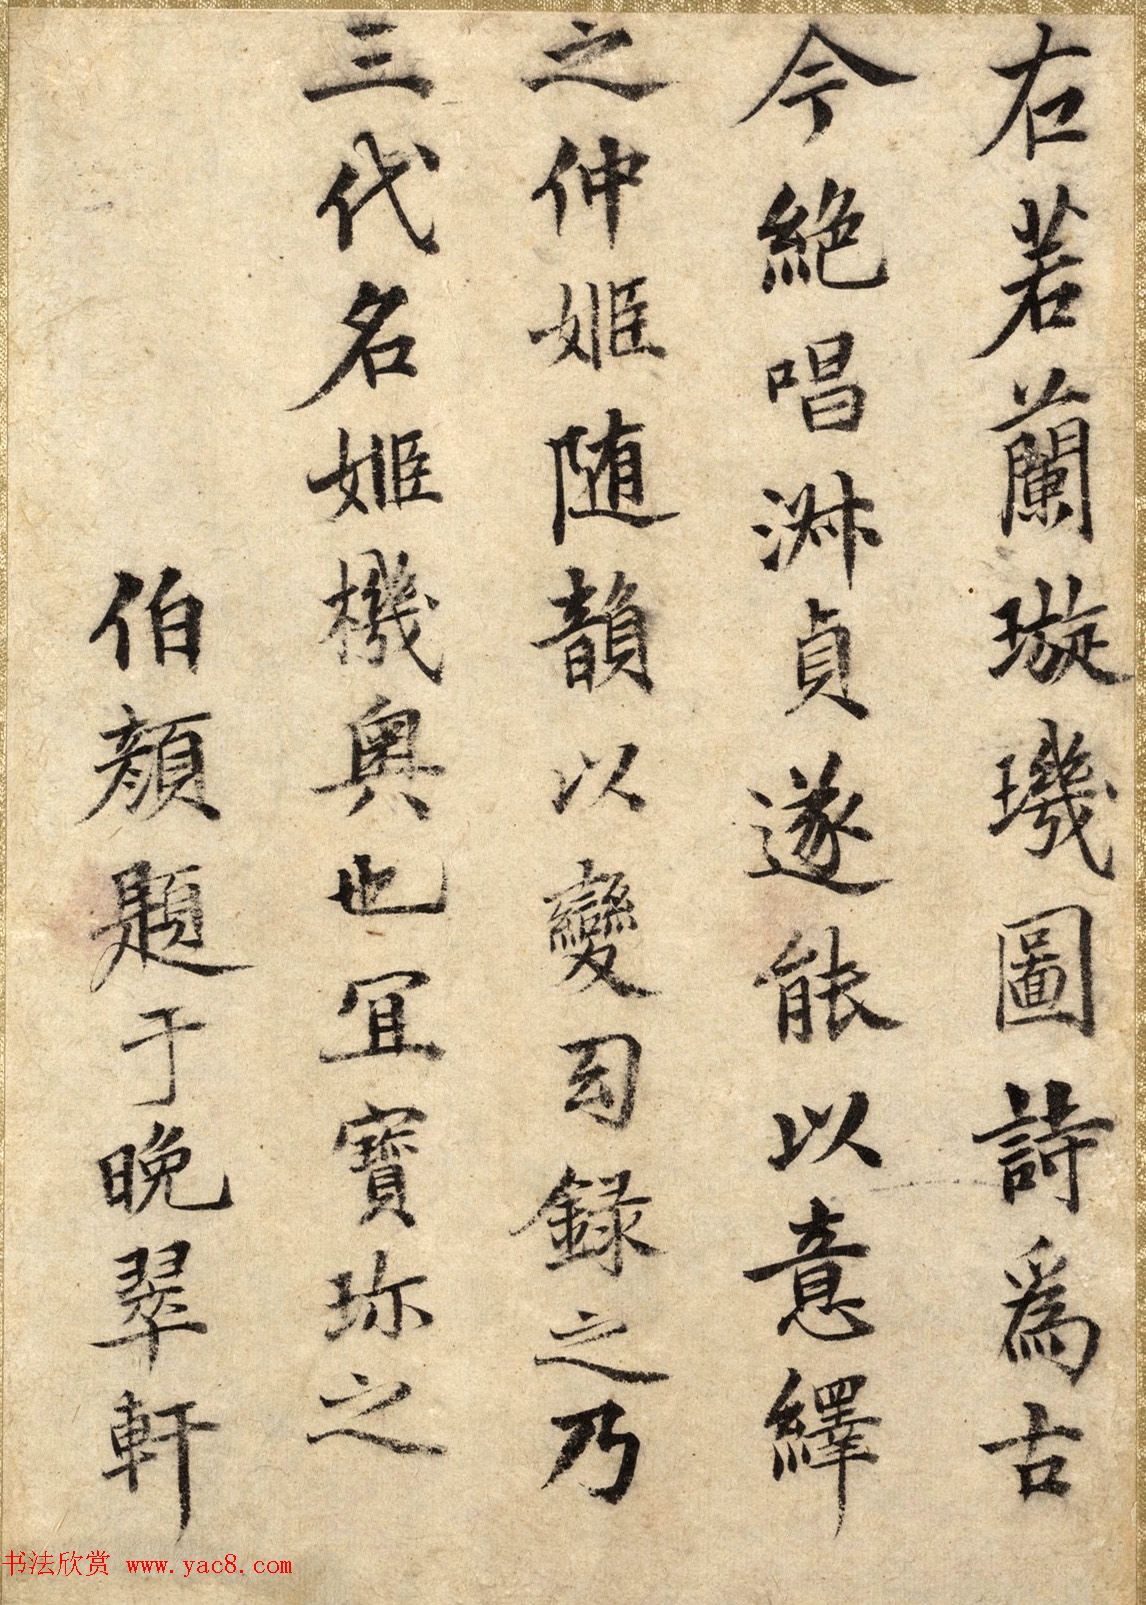 右若蘭璇璣圖詩為古
今絕唱淋貞遂能以意繹
之仲姬随韻以變司録之乃
三代名姬機奥也宜寶珎之
伯顏題于晚翠軒
书法欣赏 www.yac8.com